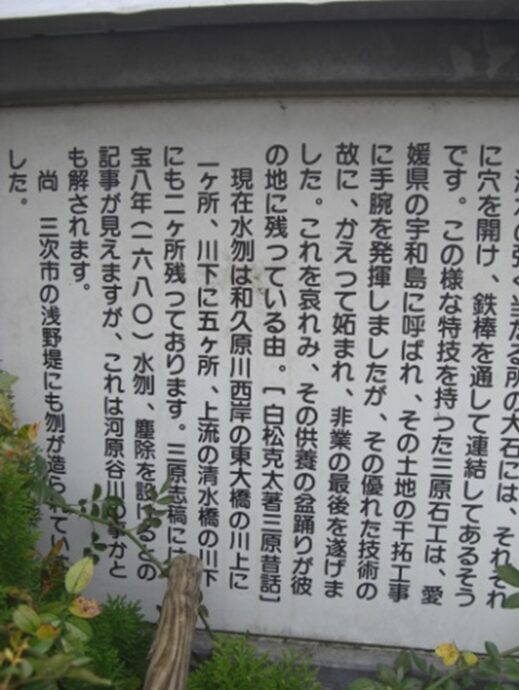 当たる所の大石には、それぞれ
に穴を開け、鉄棒を通して連結してあるそう
です。この様な特技を持った三原石工は、愛
媛県の宇和島に呼ばれ、その土地の干拓工事
に手腕を発揮しましたが、その優れた技術の
故に、かえって妬まれ、非業の最後を遂げま
した。これを哀れみ、その供養の盆踊りが彼
の地に残っている由。[白松克太著三原昔話]
現在水刎は和久原川西岸の東大橋の川上に
一ヶ所、川下に五ヶ所、上流の清水橋の川下
にも二ヶ所残っております。三原志稿には
宝八年(一六八〇)水刎、塵除を設けるの
記事が見えますが、これは河原谷川の事かと
も解されます。
尚 三次市の浅野堤にも刎が造られてい
した。